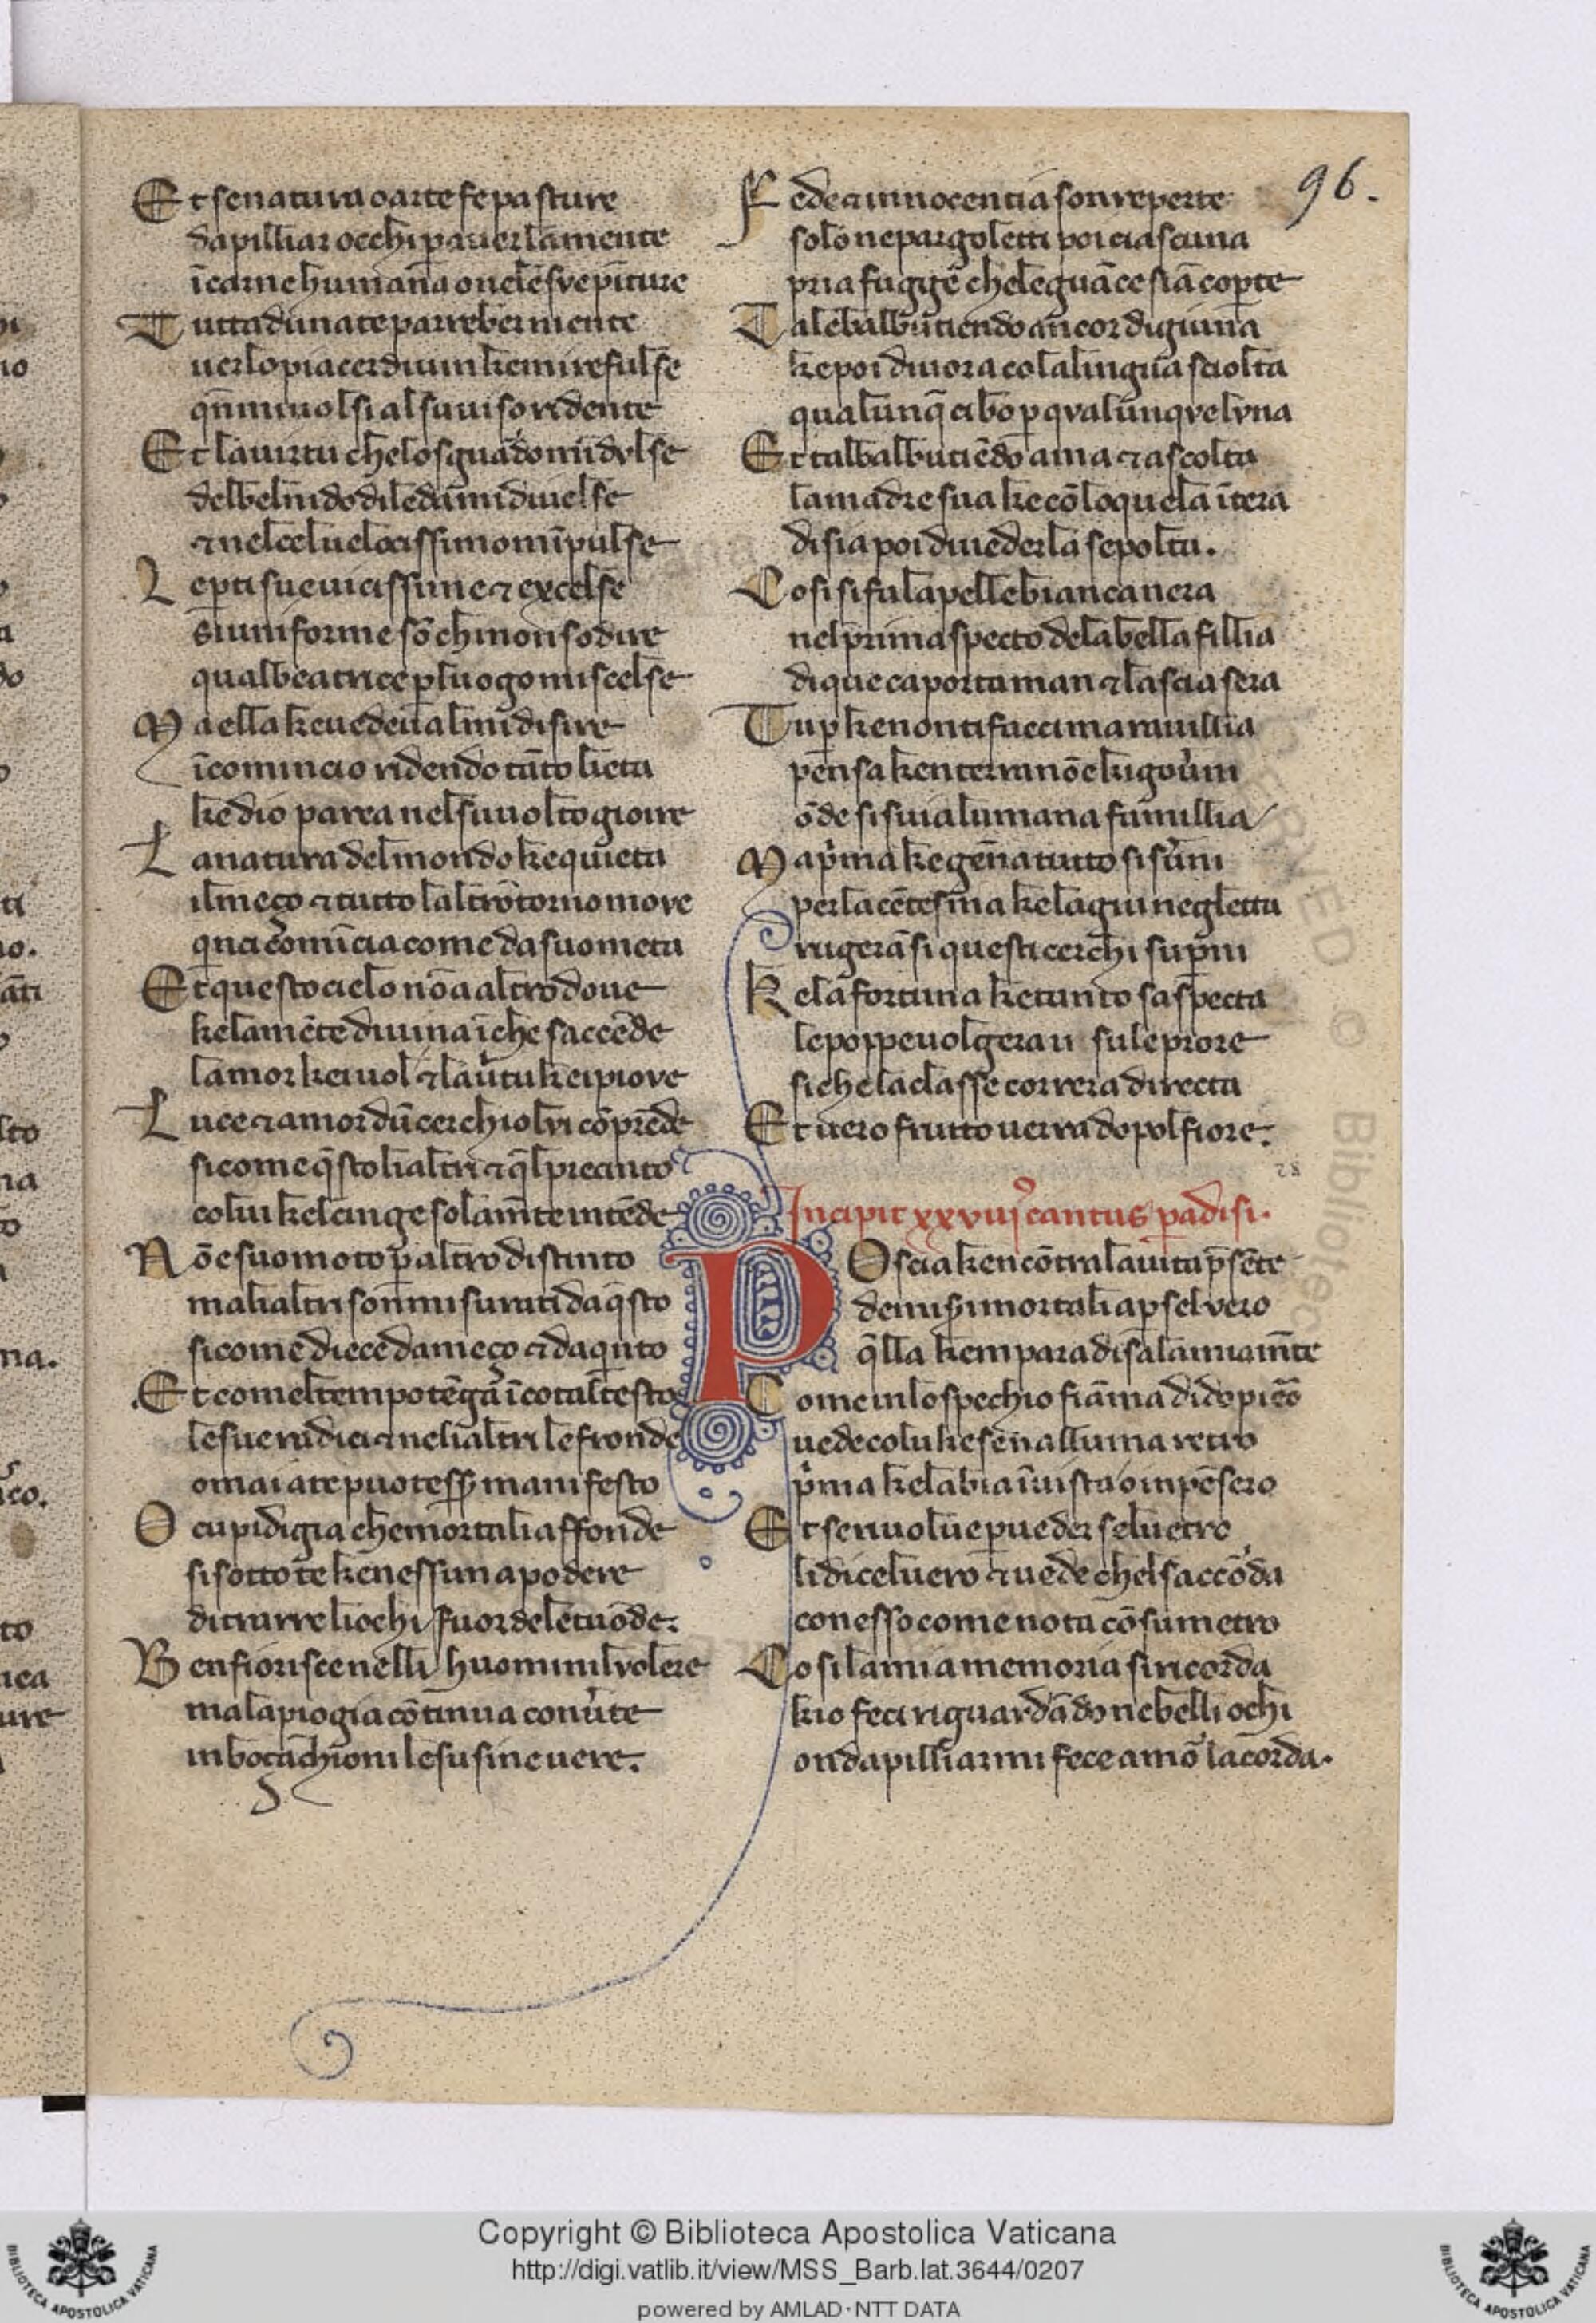 96.
Et se natura o arte fe pasture
da pilliar occhi p auer la mente
ī carne humana o nele sve piture
Tutta dunate parrebber niente
uer lo piacer diuin ke mi refulse
qn̄ mi uolsi al su uiso ridente
Et la uirtu che lo sguardo mi dvlse
del bel nido di leda mi diuelse
⁊ nel ciel uelocissimo mīpulse
Le parti sue uicissime ⁊ excelse
si uniforme sō ch i non so dire
qual beatrice p luogo mi scelse
Ma ella ke uedeua l mi disire
īcomincio ridendo tāto lieta
ke dio parea nel su uolto gioire
La natura del mondo ke quieta
il meço ⁊ tutto laltrō torno move
qnci comīcia come da suo meta
Et questo cielo nō a altro doue
ke la mēte diuina ī che saccēde
lamor kel uol ⁊ la u̾tu kei piove
Luce ⁊ amor dū cerchio lvi cōprēde
si come q̄sto li altri ⁊ q̄l precinto
colui kel cinge solam̄te intēde
Nō e suo moto p altro distinto
ma li altri son misurati da q̄sto
si come diece da meço ⁊ da qnto
Et comel tempo tēga ī cotal testo
le sue radici ⁊ ne li altri le fronde
omai a te puo tess̄ manifesto
O cupidigia che mortali affonde
si sotto te ke nessun a podere
di trarre li ochi fuor de le tu ōde.
Ben fiorisce nelli huomini l volere
ma la piogia cōtinua conu̾te
in bocāchioni le susine uere.
Fede ⁊ innocencia son reperte
solo ne pargoletti poi ciascuna
pria fuggē che le guāce siā copte
Tale balbutiendo ancor digiuna
ke poi diuora co la lingua sciolta
qualunq̄ cibo p qvalunqve lvna
Et tal balbutiēdo ama ⁊ ascolta
la madre sua ke cō loquela ītera
disia poi di uederla sepolta.
Cosi si fa la pelle bianca nera
nel prim aspecto de la bella fillia
di que caporta man ⁊ lascia sera
Tu p ke non ti facci marauillia
pensa ken terra nō e ki gou̾ni
ōde si suia lumana famillia
Ma pma ke genaio tutto si su̾ni
per la cētesma ke la giu neglecta
rugerā si questi cerchi supni
Ke la fortuna ke tanto saspecta
le poppe uolgera u su le prore
si che la classe correra directa
Et uero frutto uerra dopol fiore.
Incipit xxviij cantus padisi.
Poscia ken cōtra la uita p̄sēte
de mis̄i mortali apse l vero
q̄lla kemparadisa la mia m̄te
Come in lo spechio fiāma di dopiero
uede colui ke sen alluma retro
pma ke labia ī uista o in pēsero
Et se riuolue p ueder se l uetro
li dice l uero ⁊ uede chel saccōda
con esso come nota cō su metro
Cosi la mia memoria si ricorda
kio feci riguardādo ne belli ochi
onda pilliarmi fece amor la corda.
Copyright © Biblioteca Apostolica Vaticana
http://digi.vatlib.it/view/MSS_Barb.lat.3644/0207
powered by AMLAD·NTT DATA